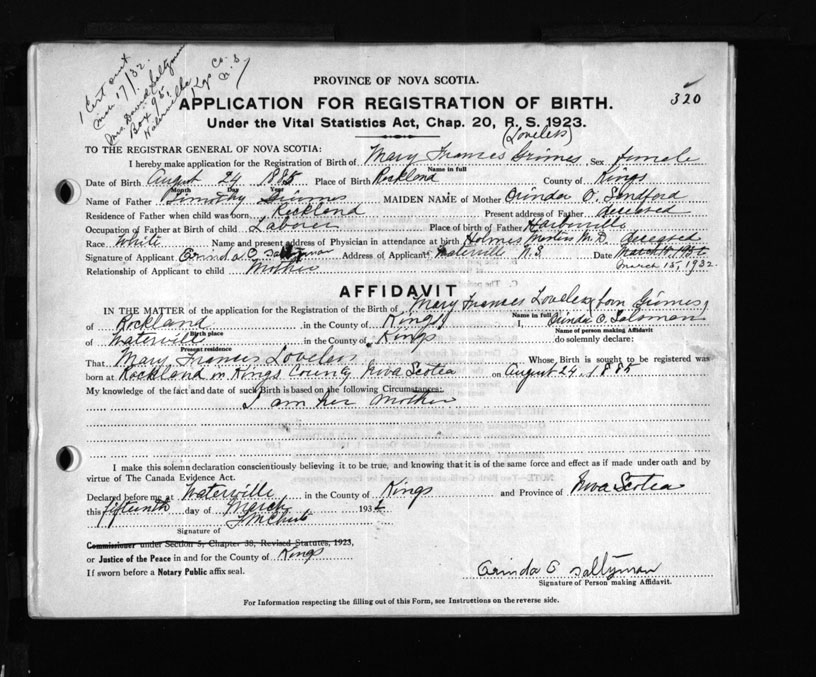 1 Cert sent
Mar 17/32.
Mrs David Saltzman
Box 95,
Waterville
Kgs Co.
N. S.
320
PROVINCE OF NOVA SCOTIA.
APPLICATION FOR REGISTRATION OF BIRTH.
Under the Vital Statistics Act, Chap. 20, R. S. 1923.
(Loveless)
TO THE REGISTRAR GENERAL OF NOVA SCOTIA:
I hereby make application for the Registration of Birth of Mary Frances Grimes Sex female
Name in full
Date of Birth August 24 1885 Place of Birth Rockland County of Kings
Month Day Year
Name of Father Timothy Grimes MAIDEN NAME of Mother Orinda O. Sandford
Residence of Father when child was born Rockland Present address of Father deceased
Occupation of Father at Birth of child Laborer Place of birth of Father Harborville
Race White Name and present address of Physician in attendance at birth Holmes Morton M.D. deceased
Signature of Applicant Orinda O Saltzman Address of Applicant Waterville N.S. Date
Relationship of Applicant to child Mother March 15, 1932
AFFIDAVIT
IN THE MATTER of the application for the Registration of the Birth of Mary Frances Loveless (born Grimes)
Name in full
of Rockland in the County of Kings I, Orinda O. Salsman
Birth place Name of Person making Affidavit
of Waterville in the County of Kings do solemnly declare:
Present residence
That Mary Frances Loveless Whose Birth is sought to be registered was
born at Rockland in Kings County Nova Scotia on August 24, 1885
My knowledge of the fact and date of such Birth is based on the following Circumstances:
I am her mother
I make this solemn declaration conscientiously believing it to be true, and knowing that it is of the same force and effect as if made under oath and by
virtue of The Canada Evidence Act.
Declared before me at Waterville in the County of Kings and Province of Nova Scotia
this fifteenth day of March 1932
Signature of
Commissioner under Section 5, Chapter 38, Revised Statutes, 1923,
or Justice of the Peace in and for the County of Kings
If sworn before a Notary Public affix seal.
Orinda O Saltzman
Signature of Person making Affidavit.
For Information respecting the filling out of this Form, see Instructions on the reverse side.